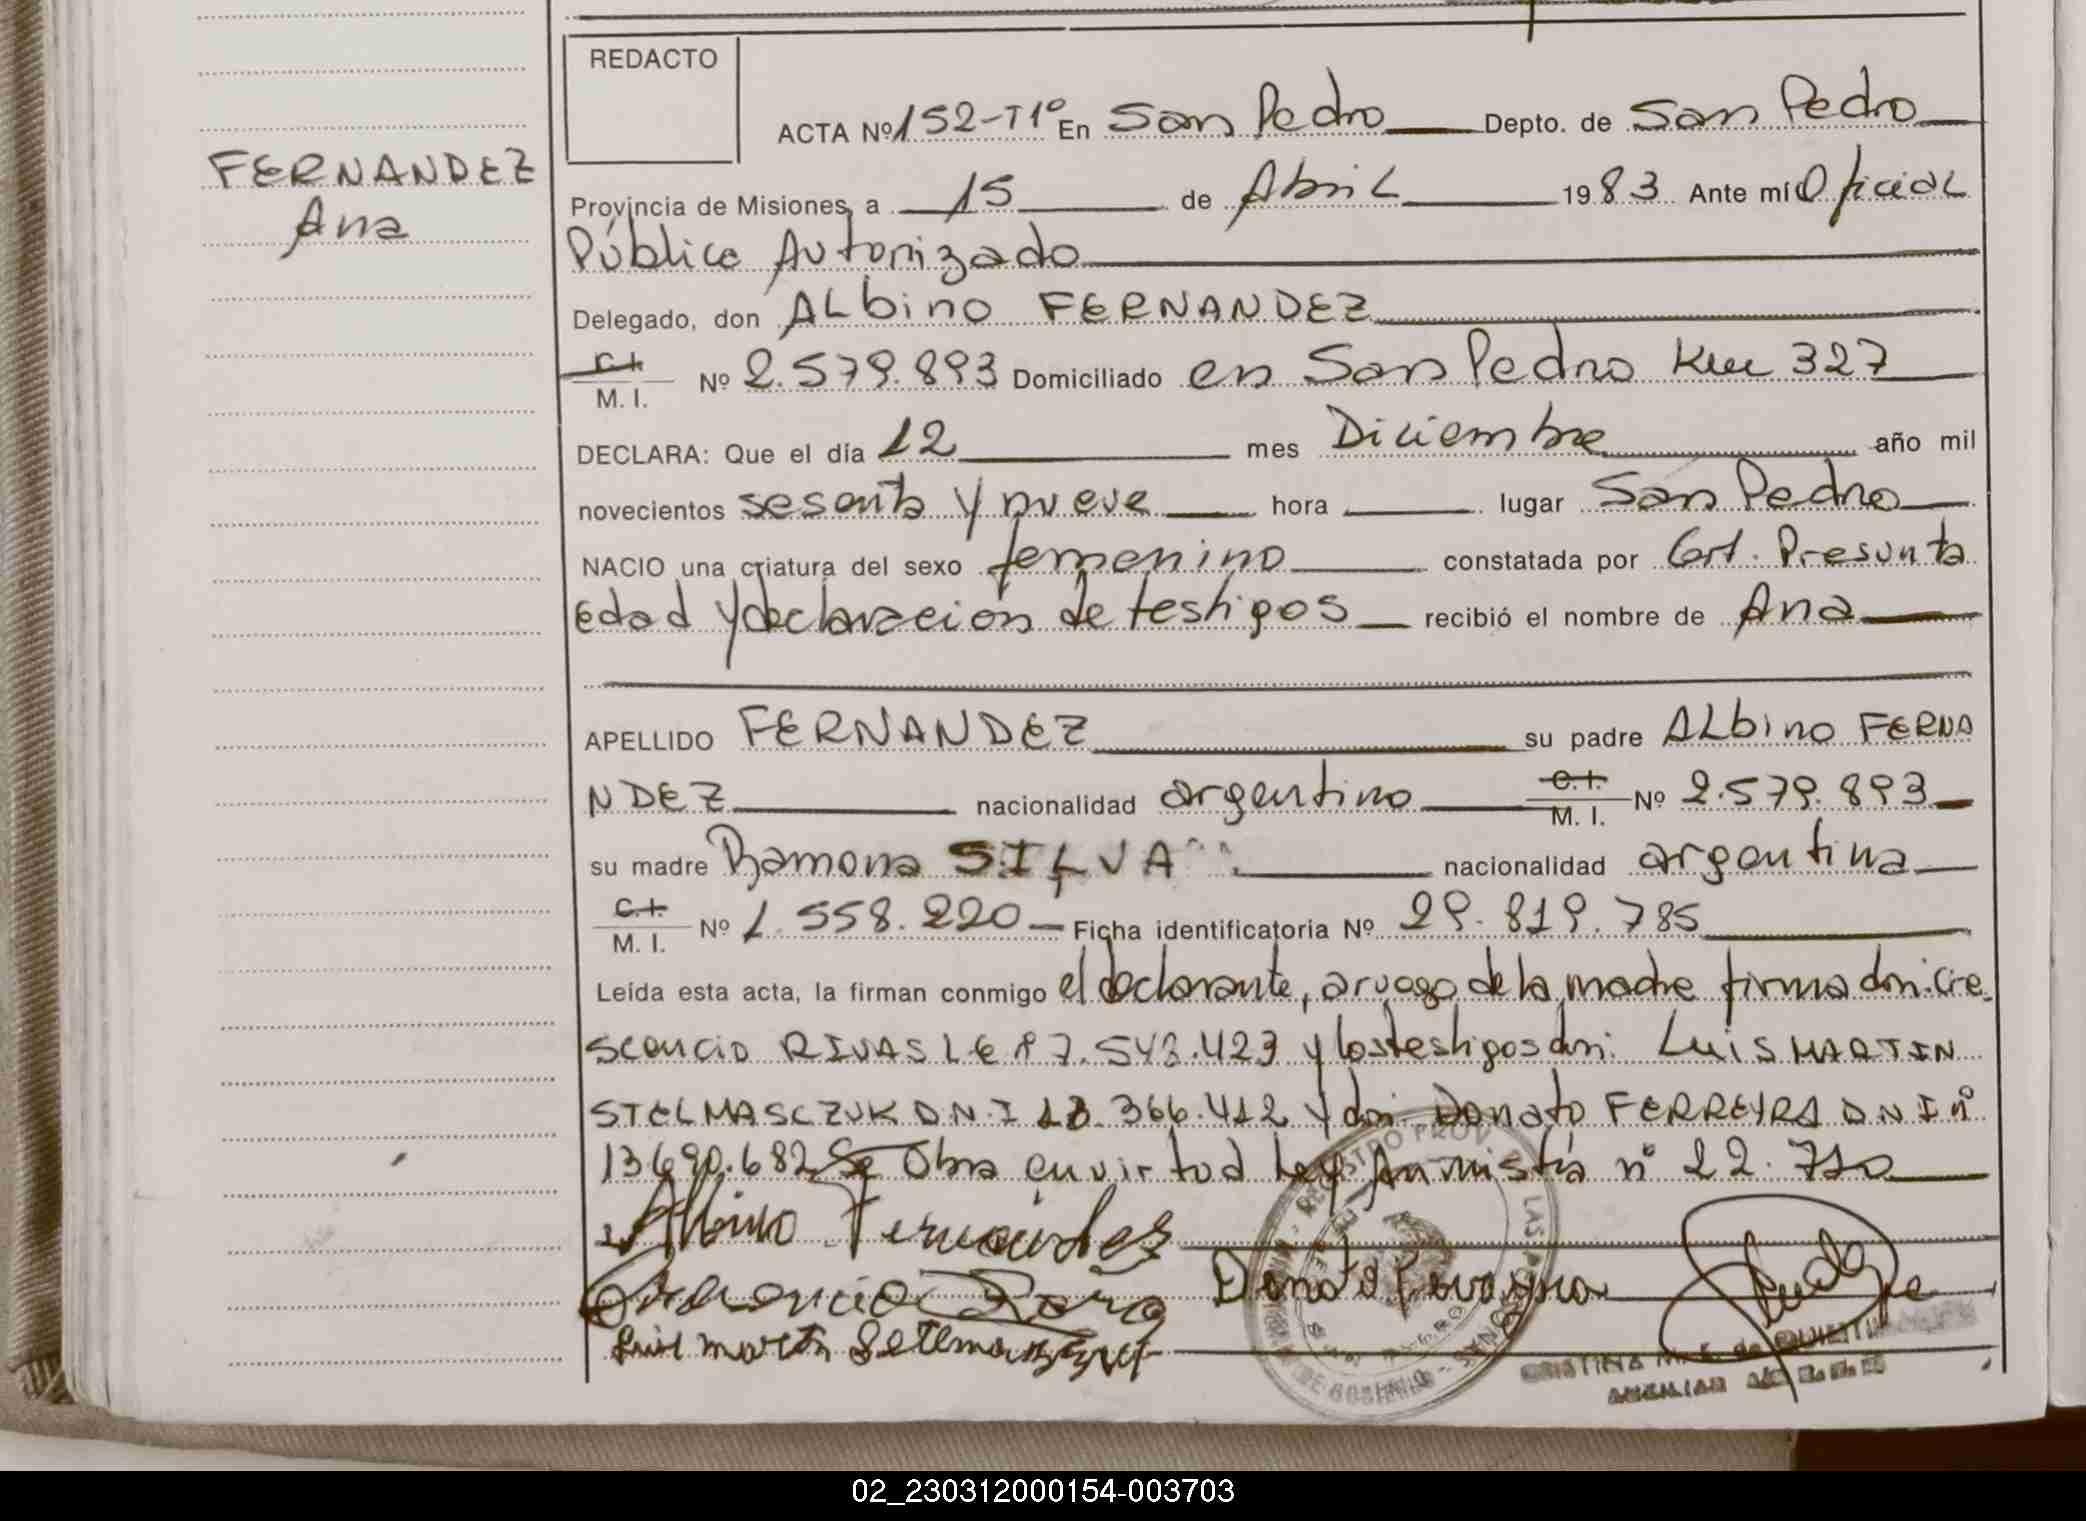 REDACTO
ACTA Nº 152-T1º En San Pedro Depto. de San Pedro
FERNANDEZ
Ana
Provincia de Misiones, a 15 de Abril 1983 Ante mí Oficial
Público Autorizado
Delegado, don ALbino FERNANDEZ
C.I.
M. I. Nº 2.579.893 Domiciliado en San Pedro Km 327
DECLARA: Que el día 12 mes Diciembre año mil
novecientos sesenta y nueve hora lugar San Pedro
NACIO una criatura del sexo femenino constatada por Cert. Presunta
edad y declaración de testigos recibió el nombre de Ana
APELLIDO FERNANDEZ su padre ALbino FERNA
NDEZ nacionalidad argentino C.I. M. I. Nº 2.579.893
su madre Ramona SILVA nacionalidad argentina
C.I.
M. I. Nº 1.558.220 Ficha identificatoria Nº 29.819.785
Leída esta acta, la firman conmigo el declarante, a ruego de la madre firma don: Cre
scencio RIVAS L E nº 7.543.423 y los testigos don: Luis MARTIN
STELMASCZUK D.N.I 13.366.412 y don: Donato FERREYRA D.N.I nº
13690.682 Se Obra en virtud Ley Anmistía nº 22.710
Albino Fernandez
Donato Ferreyra
Luis Martin
CRISTINA M.
AUXILIAR
02_230312000154-003703